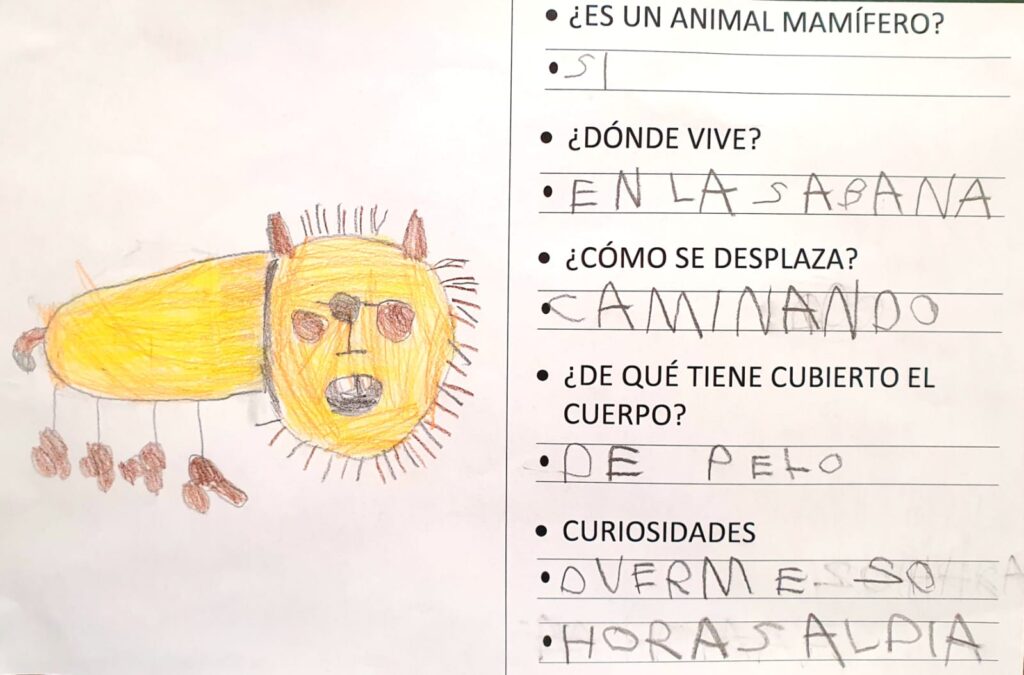 • ¿ES UN ANIMAL MAMÍFERO?
• SI
• ¿DÓNDE VIVE?
• EN LA SABANA
• ¿CÓMO SE DESPLAZA?
• CAMINANDO
• ¿DE QUÉ TIENE CUBIERTO EL
CUERPO?
• DE PELO
• CURIOSIDADES
• DUERME SO
• HORAS AL DIA